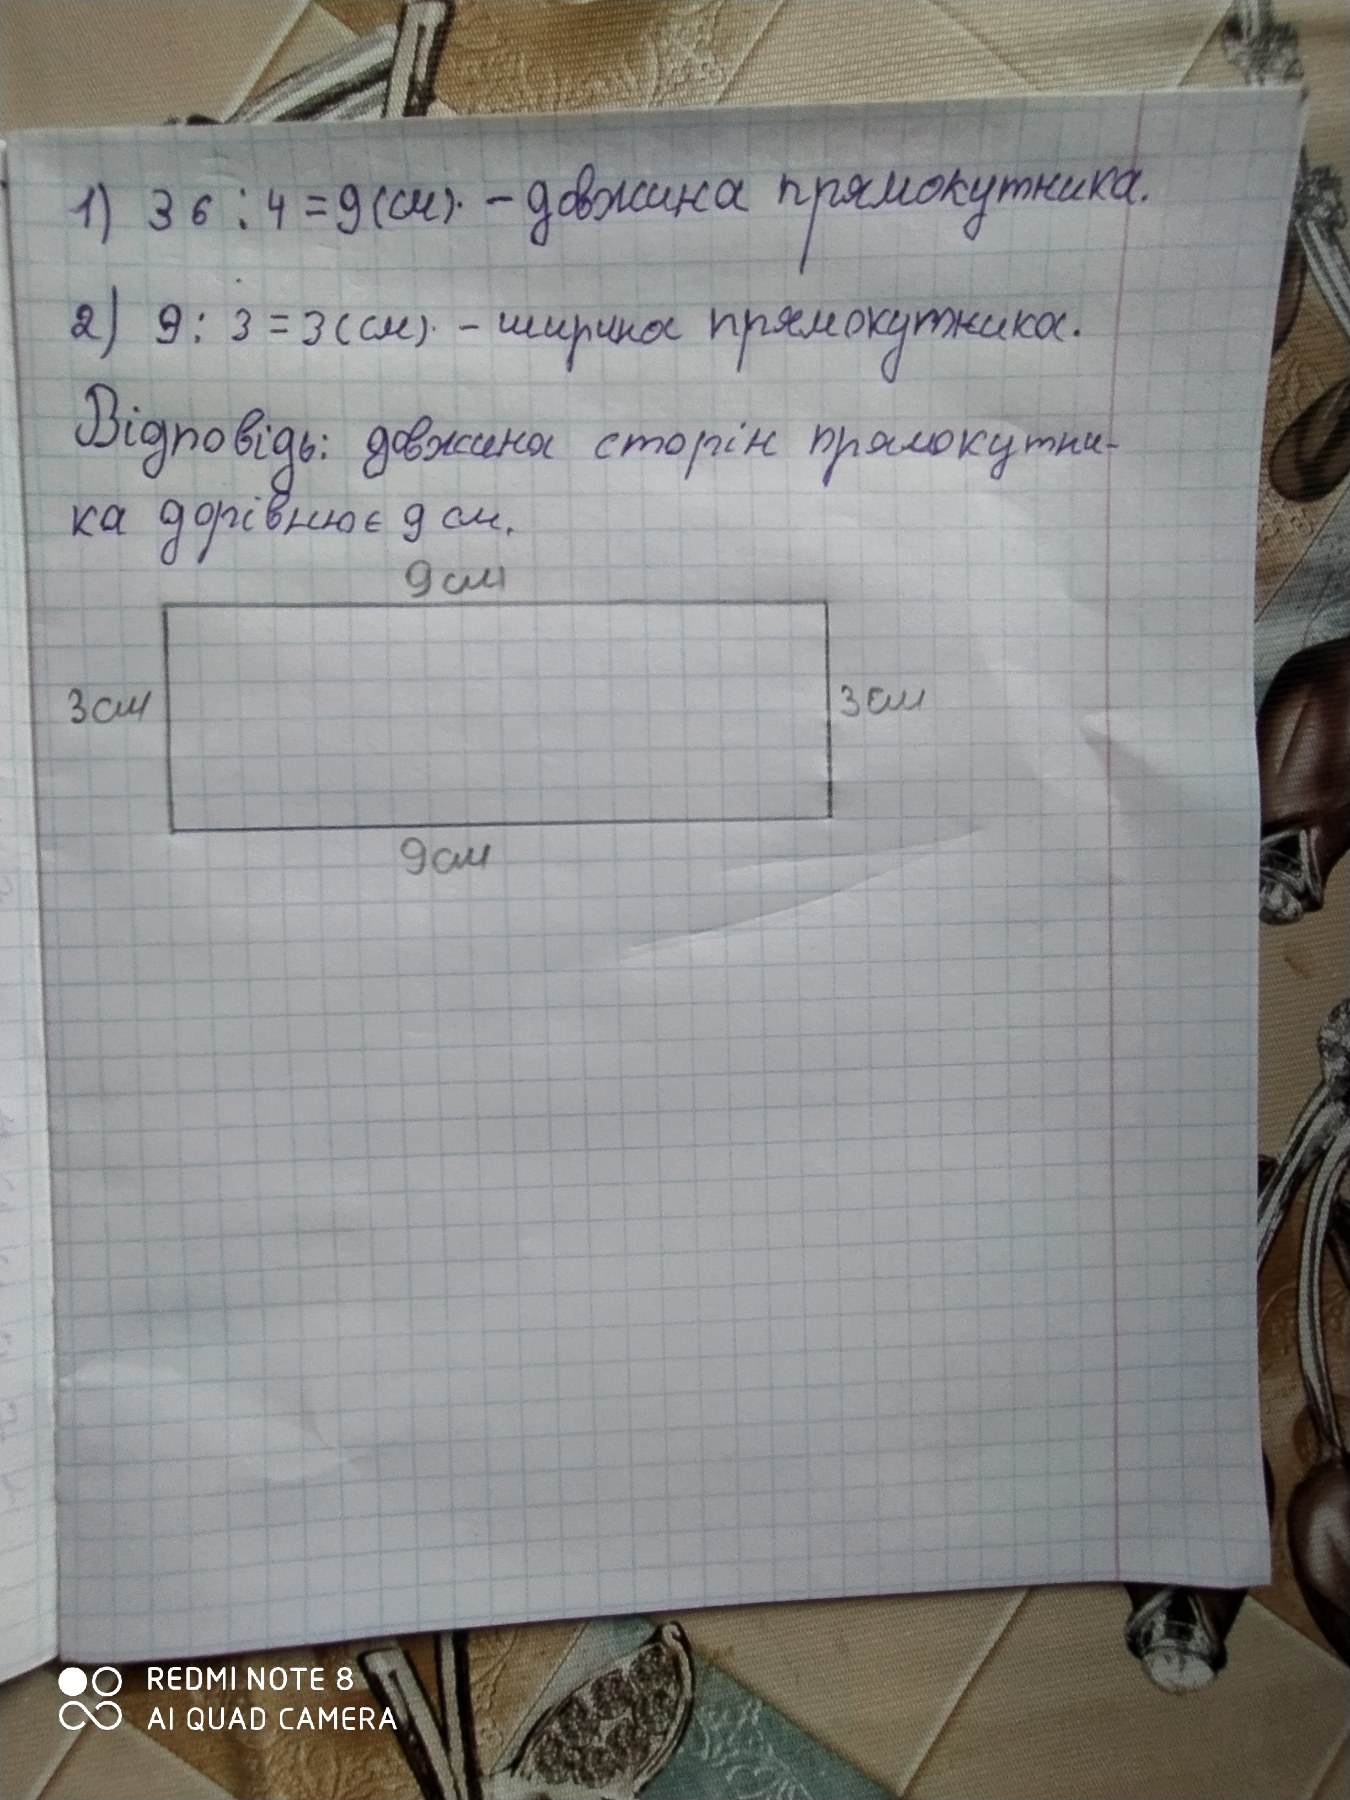 1) 36 : 4 = 9 (см). - довжина прямокутника.
2) 9 : 3 = 3 (см). - ширина прямокутника.
Відповідь: довжина сторін прямокутни-
ка дорівнює 9 см.
9 см
3 см
3 см
9 см
REDMI NOTE 8
AI QUAD CAMERA